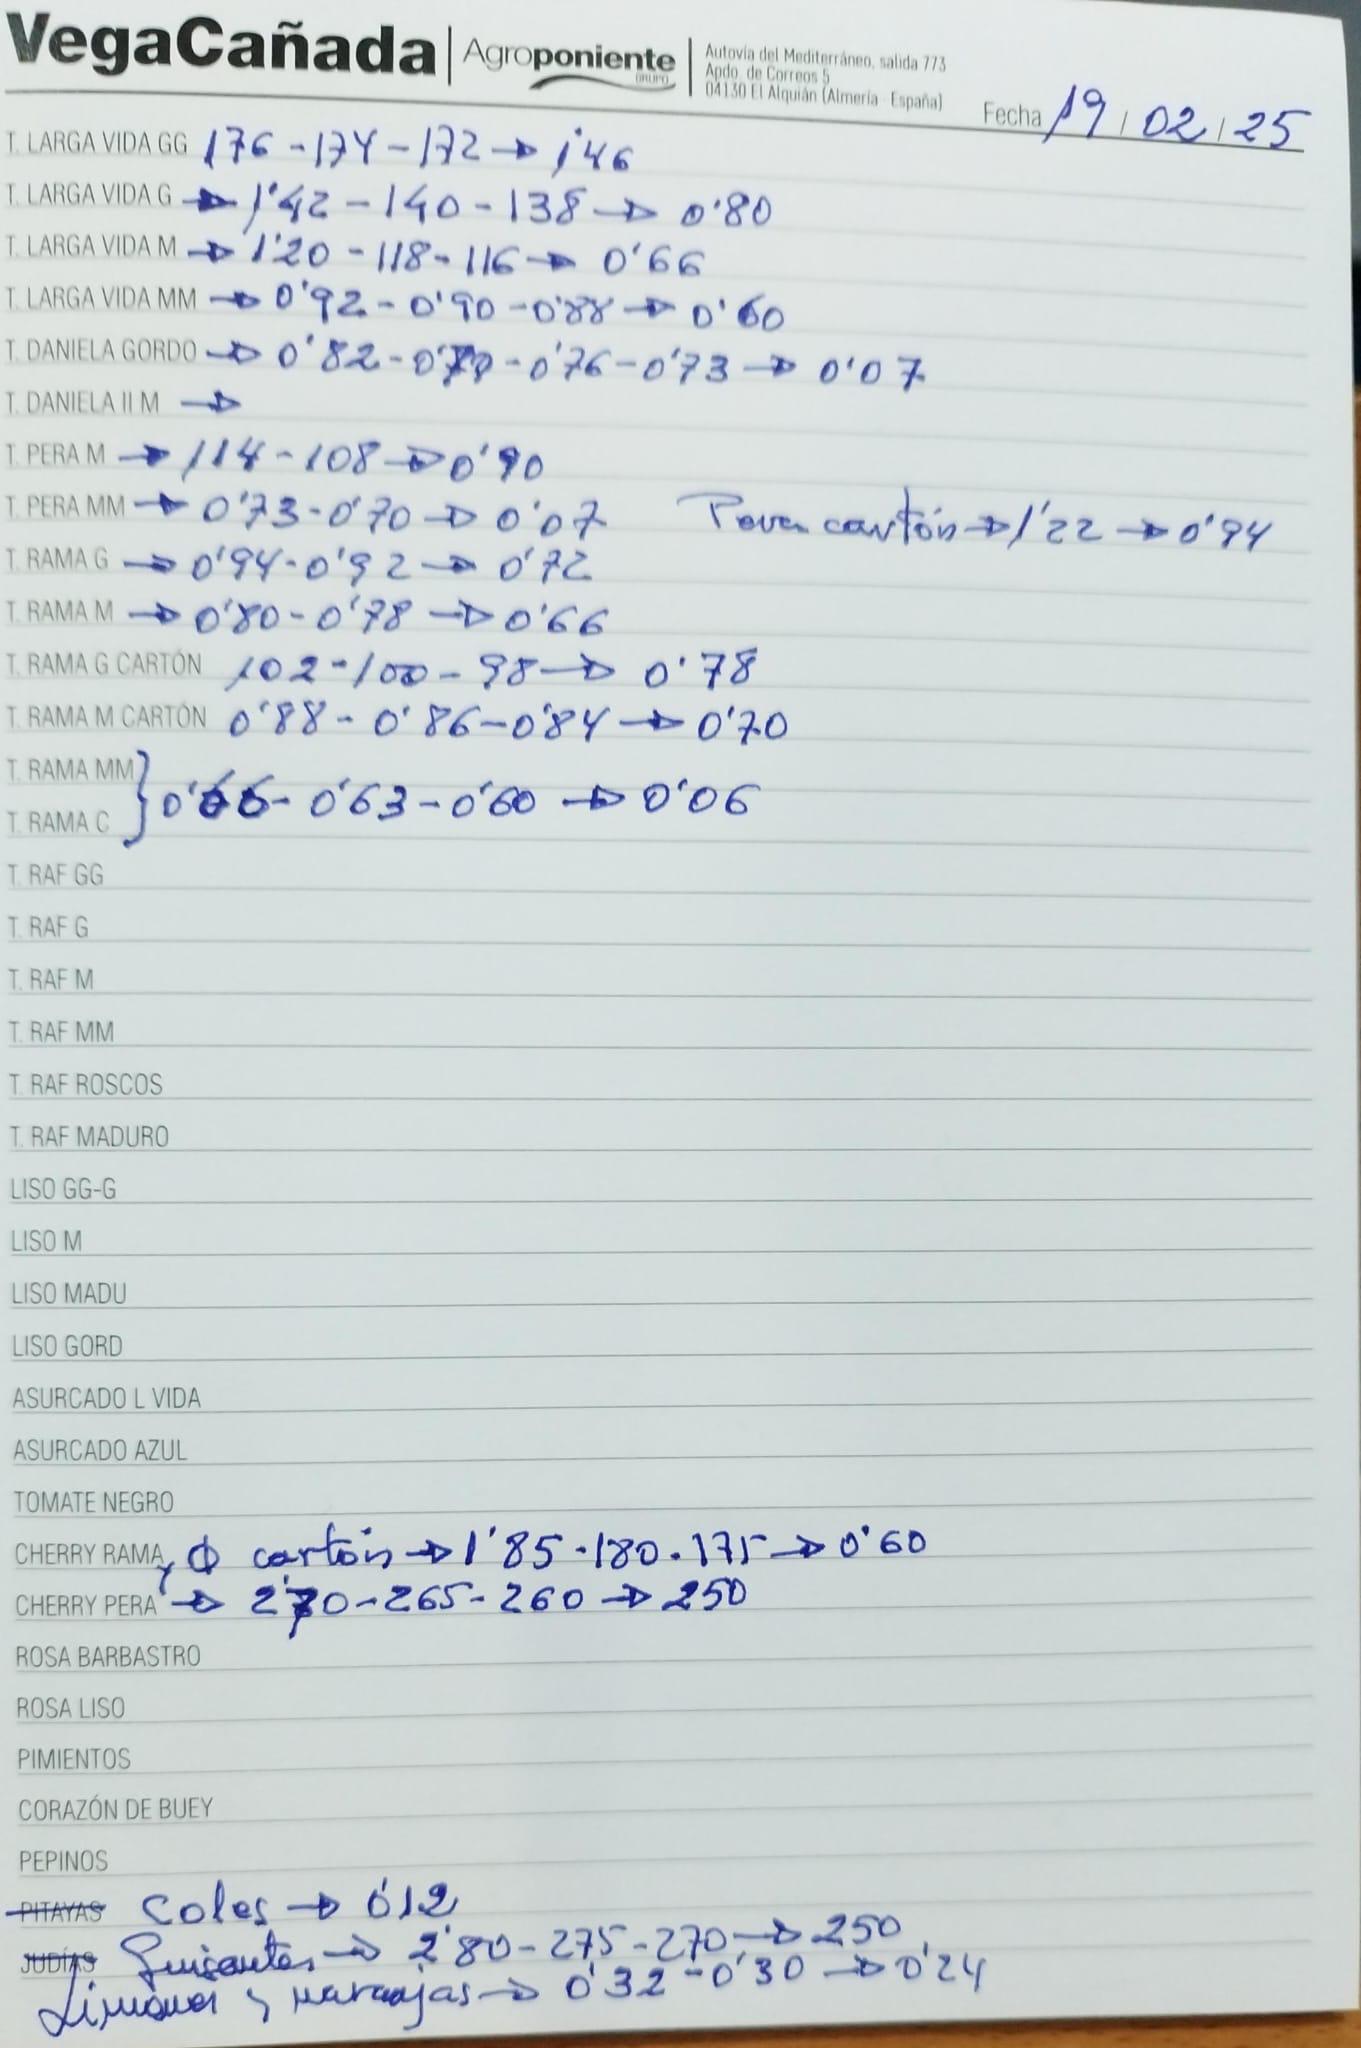 VegaCañada | Agroponiente GRUPO | Autovía del Mediterráneo, salida 773
Apdo. de Correos 5
04130 El Alquián (Almería - España)
Fecha 19/02/25
T. LARGA VIDA GG 176-174-172→1'46
T. LARGA VIDA G → 1'42-140-138→0'80
T. LARGA VIDA M → 1'20-118-116→0'66
T. LARGA VIDA MM → 0'92-0'90-0'88→0'60
T. DANIELA GORDO → 0'82-0'79-0'76-0'73→0'07
T. DANIELA II M →
T. PERA M → 114-108→0'90
T. PERA MM → 0'73-0'70→0'07 Pera cartón→1'22→0'94
T. RAMA G → 0'94-0'92→0'72
T. RAMA M → 0'80-0'78→0'66
T. RAMA G CARTÓN 102-100-98→0'78
T. RAMA M CARTÓN 0'88-0'86-0'84→0'70
T. RAMA MM
} 0'66-0'63-0'60→0'06
T. RAMA C
T. RAF GG
T. RAF G
T. RAF M
T. RAF MM
T. RAF ROSCOS
T. RAF MADURO
LISO GG-G
LISO M
LISO MADU
LISO GORD
ASURCADO L VIDA
ASURCADO AZUL
TOMATE NEGRO
CHERRY RAMA y Φ cartón→1'85-180-175→0'60
CHERRY PERA → 2'70-265-260→250
ROSA BARBASTRO
ROSA LISO
PIMIENTOS
CORAZÓN DE BUEY
PEPINOS
PITAYAS Coles→0'12
JUDÍAS Guisantes→2'80-275-270→250
Limones y naranjas→0'32-0'30→0'24